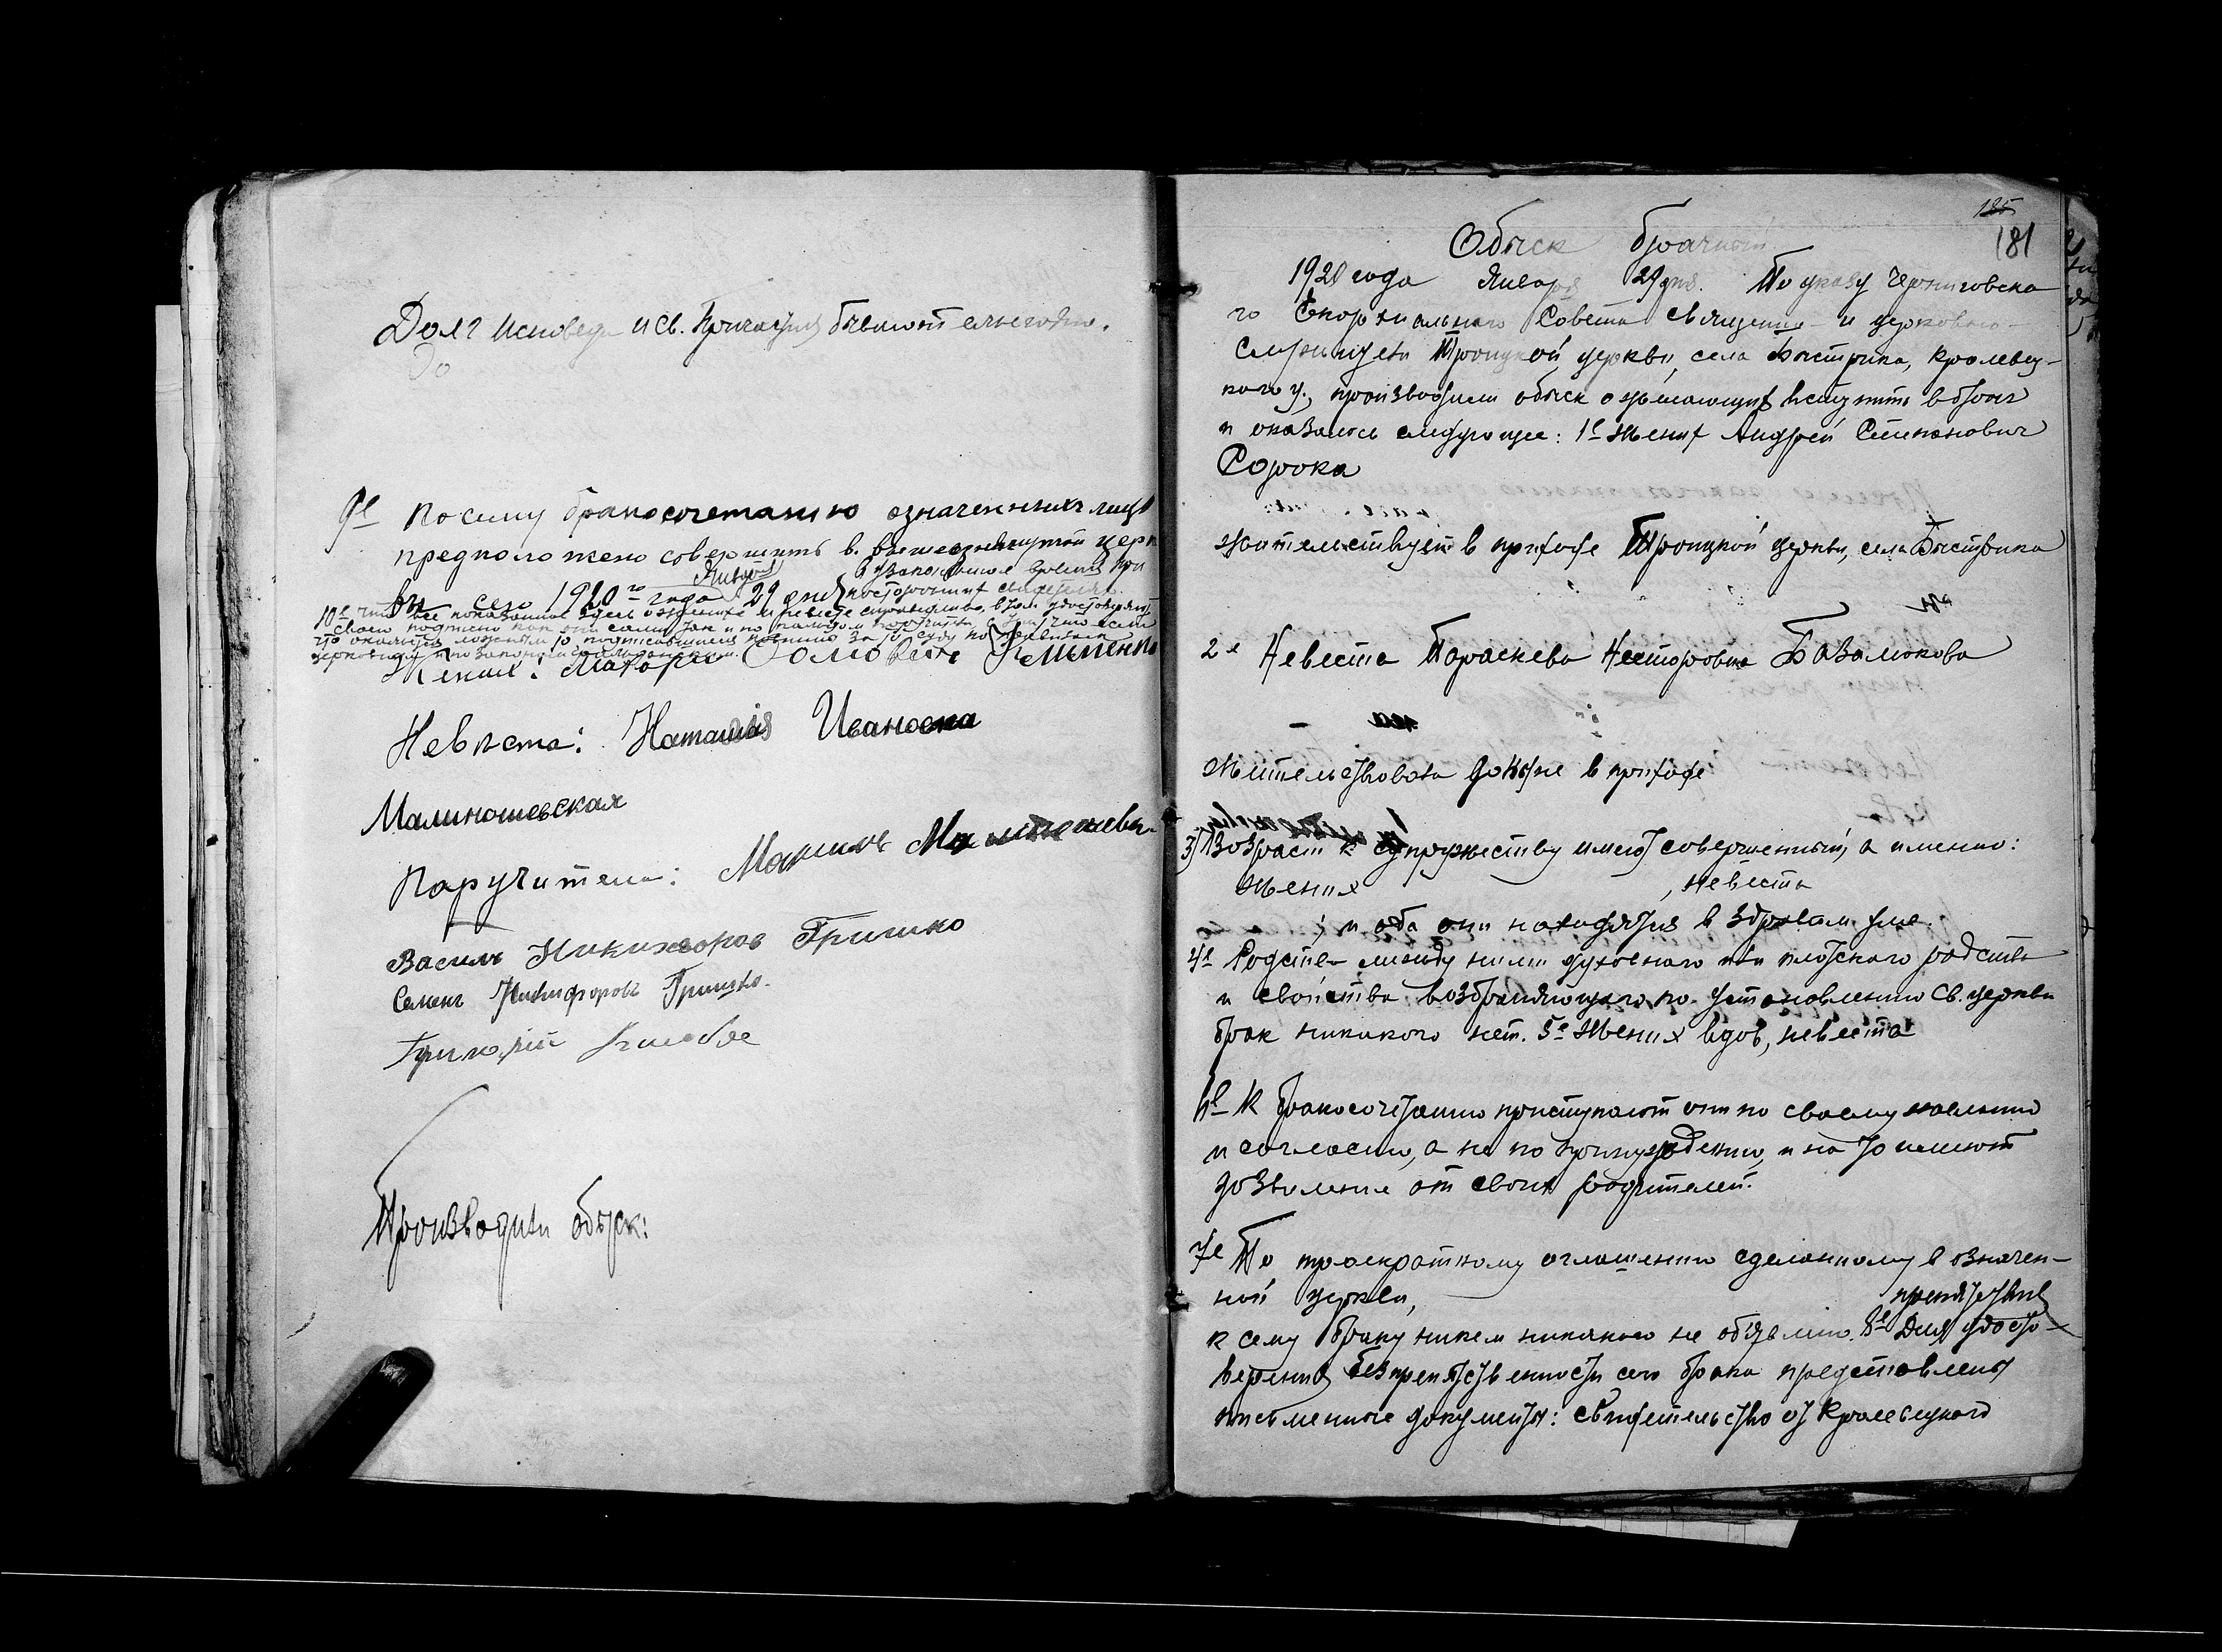 Долг исповеди и св. Причастия бывают ежегодно.
До
9е По сему бракосочетанию означенных лиц
предположено совершить в вышеупомянутой церк
ви сего 1920го года Января 29 дня в узаконенное время при
посторонних свидетелях.
10е что все показанное здесь о женихе и невесте справедливо, в том удостоверяют
своею подписью как они сами, так и по
церковному и по законам гражданским.
Жених: Макарий Клименко
Невеста: Наталия Ивановна
Малиношевская
Поручители: Максим Малиношевск
Василь Никихворов Гришко
Семен Никифоров Гришко.
Григорий
Производили обыск:
185
181
Обыск брачный
1920 года Января 29 дня. По указу Черниговска
го Епархиального Совета священно- и церковно-
служители Троицкой церкви, села Быстрика, Кролевец-
кого у., производили обыск о желающих вступить в брак
и оказалось следующее: 1е Жених Андрей Степанович
Сорока
жительствует в приходе Троицкой церкви, села Быстрика
2е Невеста Параскева Несторовна Базалюкова
жительствовала доныне в приходе
3) Возраст к супружеству имеют совершенный, а именно:
жених , невеста
; и оба они находятся в здравом уме.
4е Родства между ними духовного или плотского родства
и свойства возбраняющаго по установлению св. церкви
брак никакого нет. 5е Жених вдов, невеста
6е К бракосочетанию приступают они по своему желанию
и согласию, а не по принуждению, и на то имеют
дозволение от своих родителей.
7е По троекратному оглашению сделанному в означен-
ной церкви,
препятствия
к сему браку никем никакого не объявлено. 8е Для удосто-
верения безпрепятственности сего брака представлены
письменные документы: свидетельство от Кролевецкого